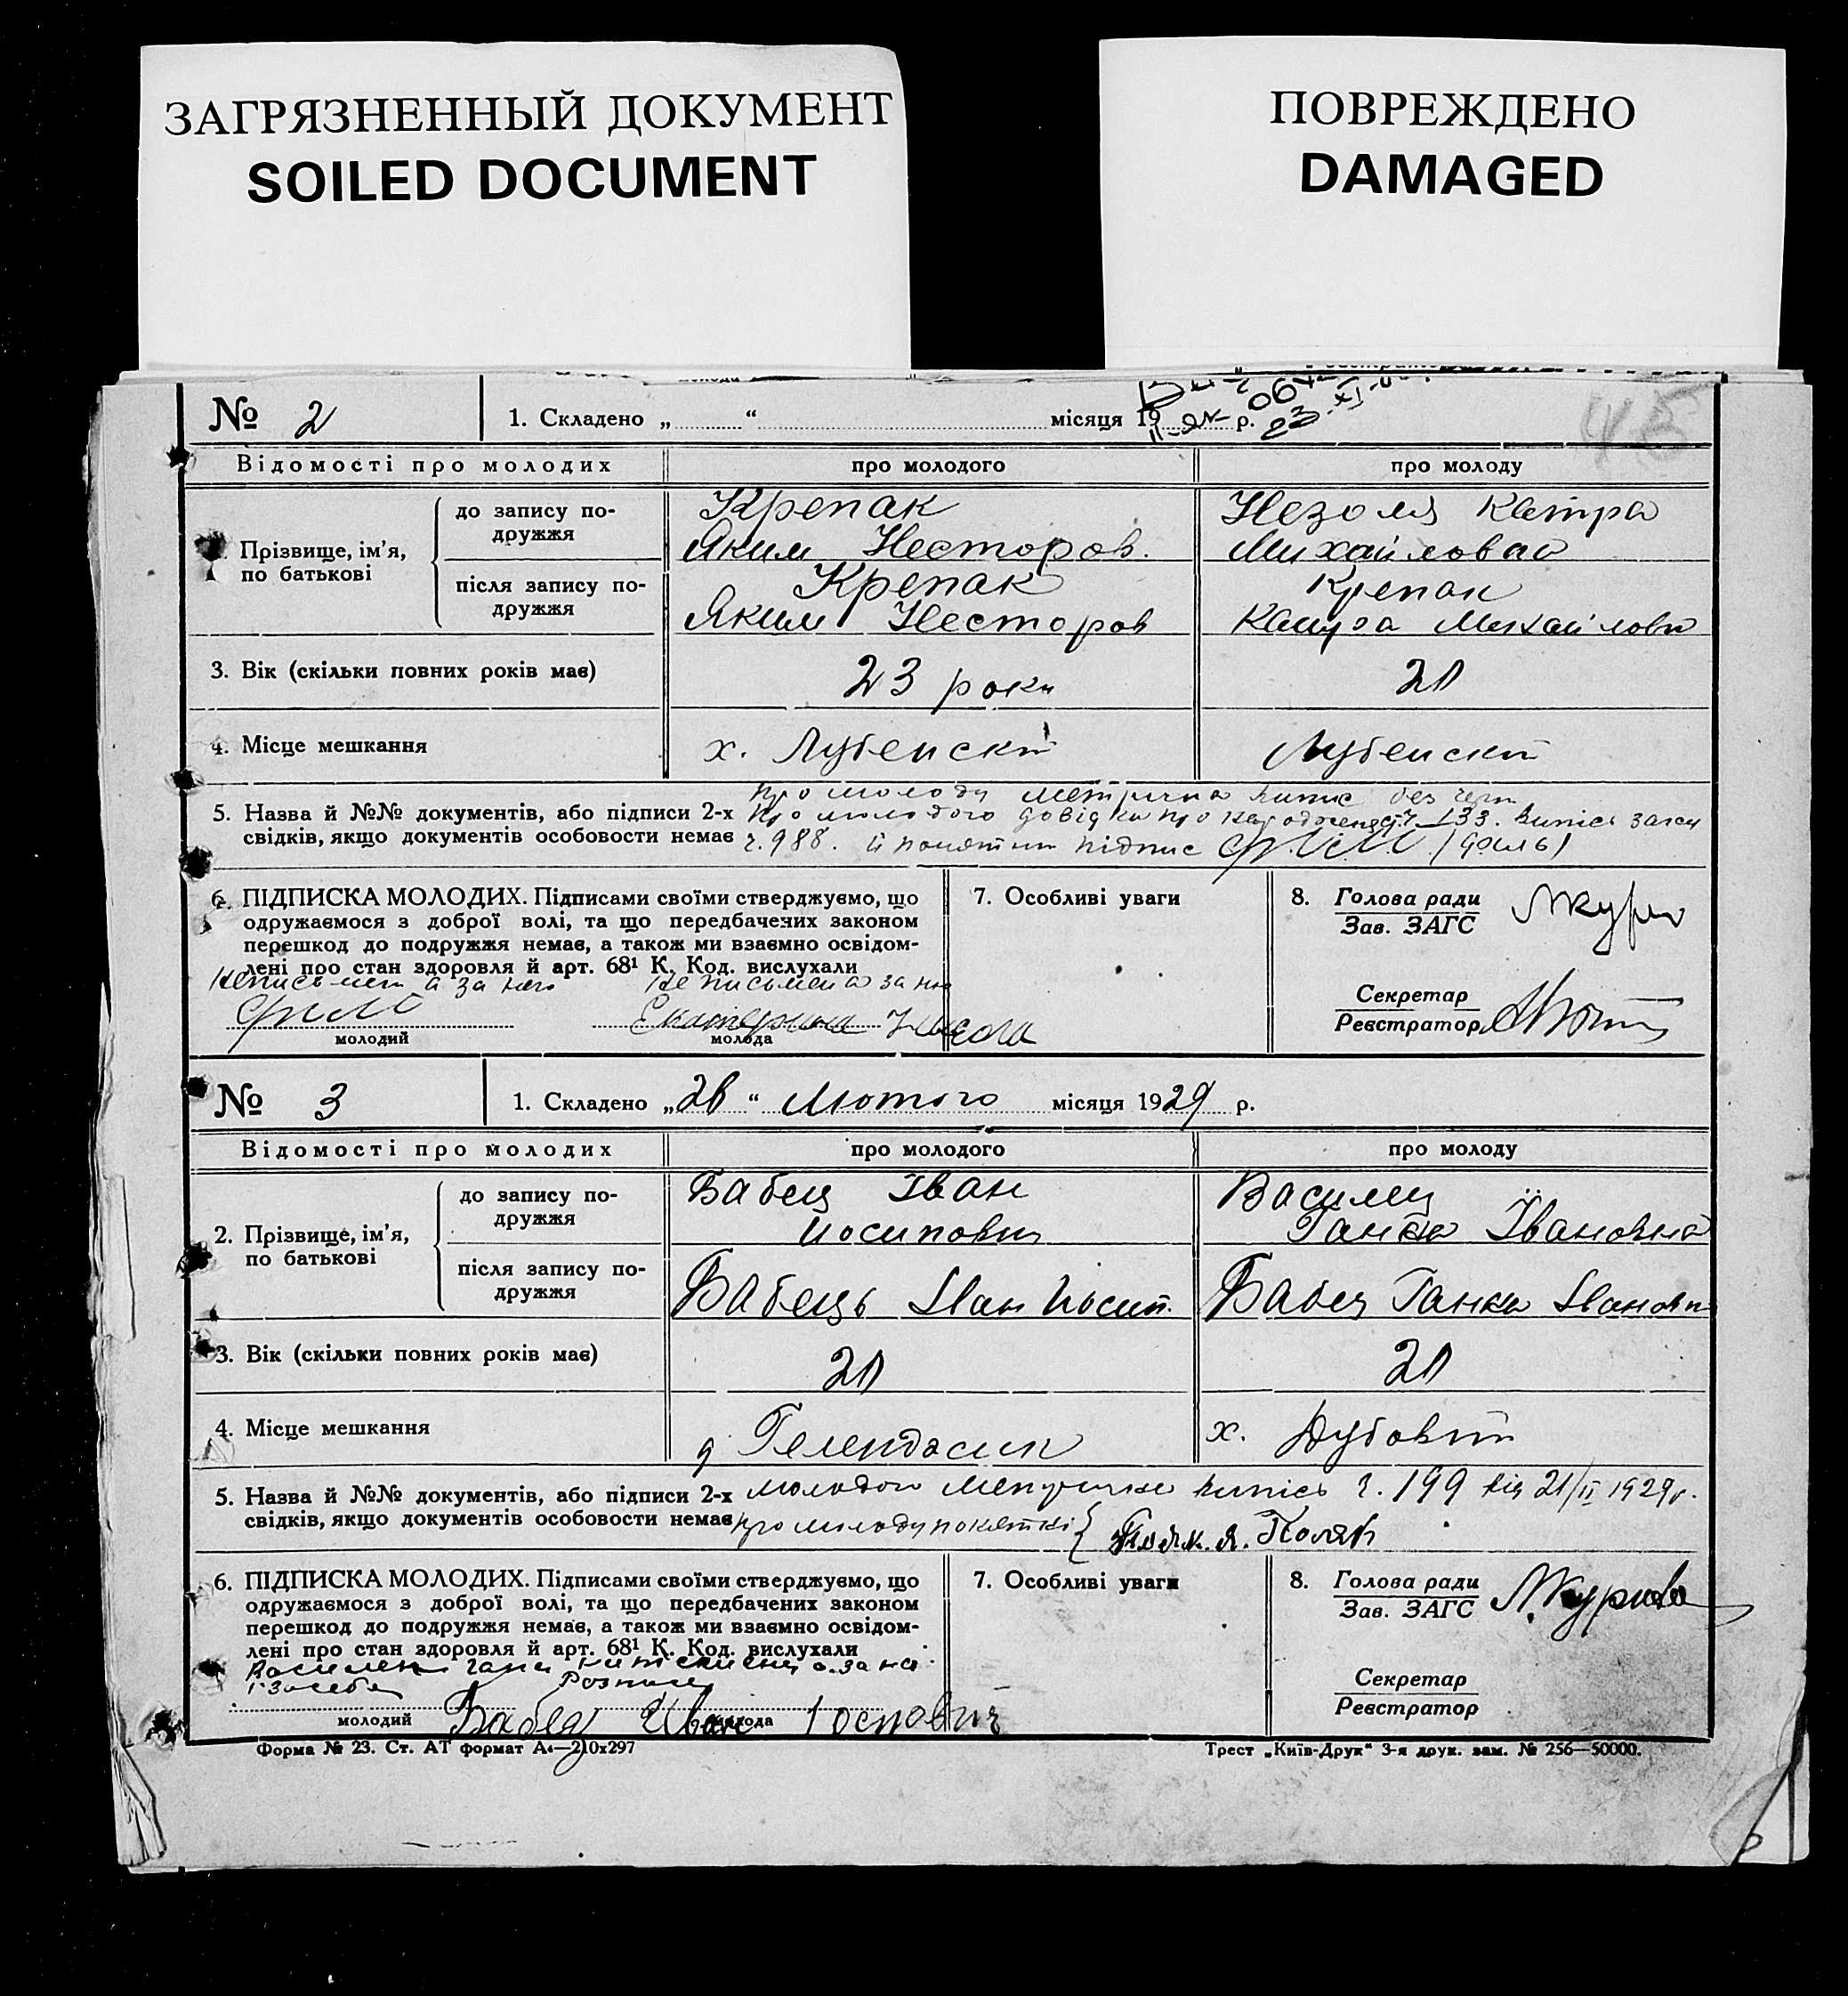 ЗАГРЯЗНЕННЫЙ ДОКУМЕНТ
SOILED DOCUMENT
ПОВРЕЖДЕНО
DAMAGED
№ 2
1. Складено „ “ місяця 19 р.
Відомості про молодих
про молодого
про молоду
Прізвище, ім’я,
по батькові
до запису по-
дружжя
Крепак
Яким Несторов.
Незоля Катра
Михайловна
після запису по-
дружжя
Крепак
Яким Несторов
Крепак
Катра Михайловн
3. Вік (скільки повних років має)
23 роки
21
4. Місце мешкання
х. Лубенскі
Лубенскі
5. Назва й №№ документів, або підписи 2-х
свідків, якщо документів особовости немає
про молоду метрична випис без
про молодого довідка про 133. випісь
ч. 988. підпис
6. ПІДПИСКА МОЛОДИХ. Підписами своїми стверджуємо, що
одружаємося з доброї волі, та що передбачених законом
перешкод до подружжя немає, а також ми взаємно освідом-
лені про стан здоровля й арт. 68¹ К. Код. вислухали
за него
за ню
Екатерина
молодий
молода
7. Особливі уваги
8. Голова ради
Зав. ЗАГС
Секретар
Реєстратор
№ 3
1. Складено „28“ Лютого місяця 1929 р.
Відомості про молодих
про молодого
про молоду
2. Прізвище, ім’я,
по батькові
до запису по-
дружжя
Бабец Іван
Иосипович
Василец
Ганка Івановна
після запису по-
дружжя
Бабець Іван Иосип.
Бабец Ганка Івановн
3. Вік (скільки повних років має)
21
21
4. Місце мешкання
х. Дубовий
5. Назва й №№ документів, або підписи 2-х
свідків, якщо документів особовости немає
молодого метричне випісь ч. 199 від 21/II 1929 г.
про молоду понятті
6. ПІДПИСКА МОЛОДИХ. Підписами своїми стверджуємо, що
одружаємося з доброї волі, та що передбачених законом
перешкод до подружжя немає, а також ми взаємно освідом-
лені про стан здоровля й арт. 68¹ К. Код. вислухали
молодий
молода
Бабец Иван
7. Особливі уваги
8. Голова ради
Зав. ЗАГС
Секретар
Реєстратор
Форма № 23. Ст. АТ формат А₄—210х297
Трест „Київ-Друк“ 3-я друк. зам. № 256—50000.